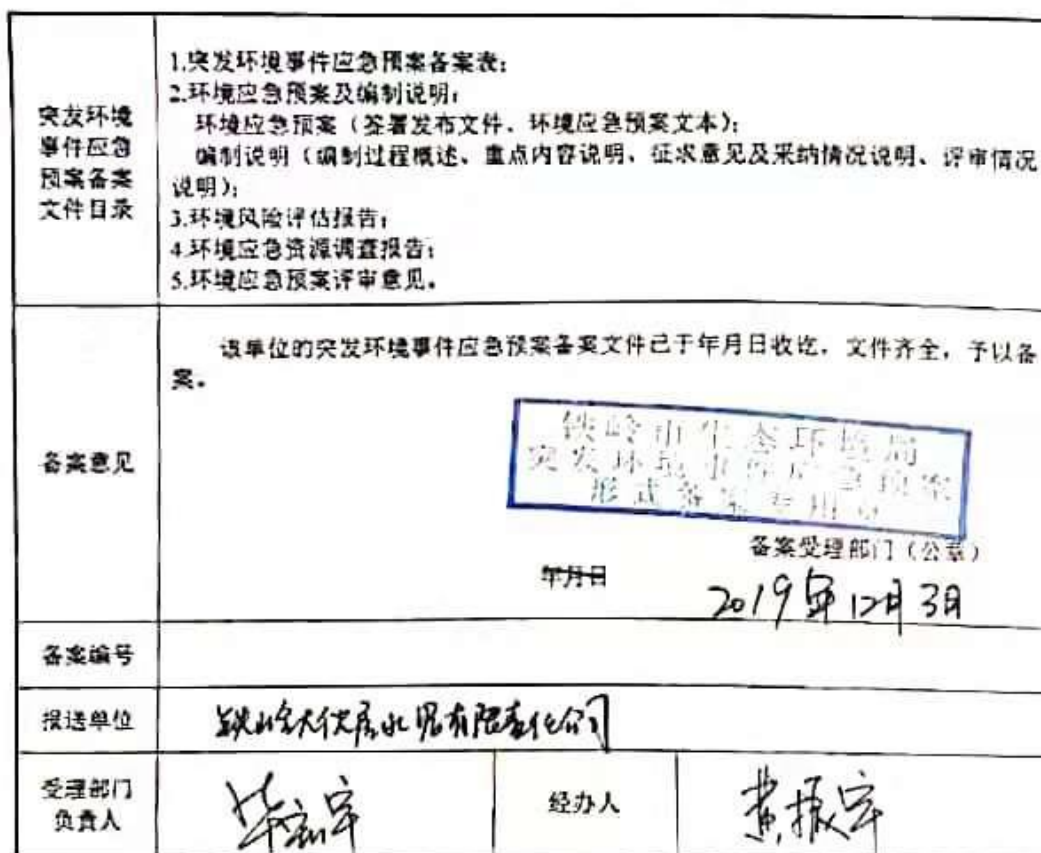 突发环境
事件应急
预案备案
文件目录
1.突发环境事件应急预案备案表;
2.环境应急预案及编制说明;
环境应急预案（签署发布文件、环境应急预案文本）;
编制说明（编制过程概述、重点内容说明、征求意见及采纳情况说明、评审情况
说明）;
3.环境风险评估报告;
4.环境应急资源调查报告;
5.环境应急预案评审意见。
备案意见
该单位的突发环境事件应急预案备案文件已于年月日收讫，文件齐全，予以备
案。
铁岭市生态环境局
突发环境事件应急预案
形式备案专用章
备案受理部门（公章）
年月日
2019年12月3日
备案编号
报送单位
铁岭大伙房水泥有限责任公司
受理部门
负责人
经办人
黄振宇